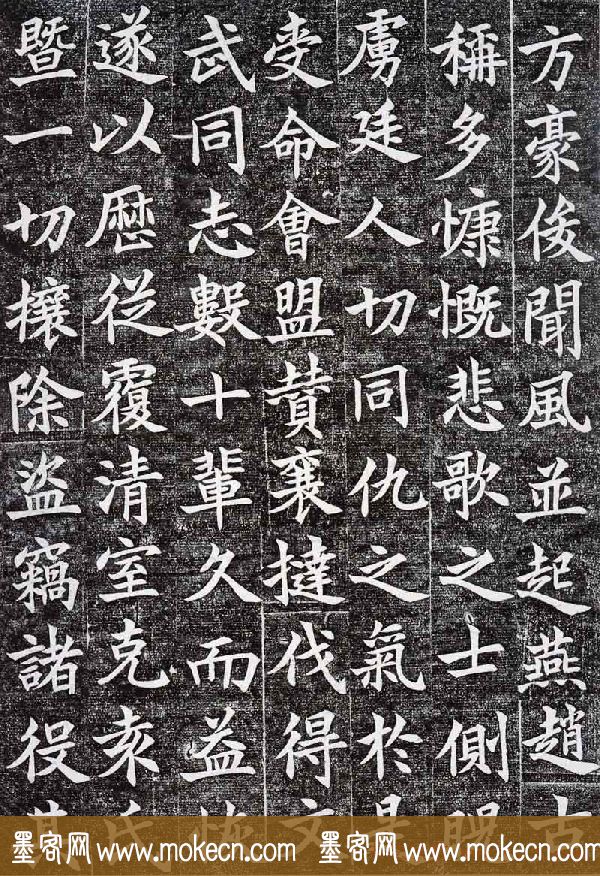 方豪俊聞風並起燕趙古
稱多慷慨悲歌之士側
虜廷人切同仇之氣於是
受命會盟賛襄撻伐得文
武同志數十輩久而益
遂以歷從覆清室克袁氏
暨一切攘除盜竊諸役其
墨客网 www.mokecn.com 墨客网 www.mokecn.com